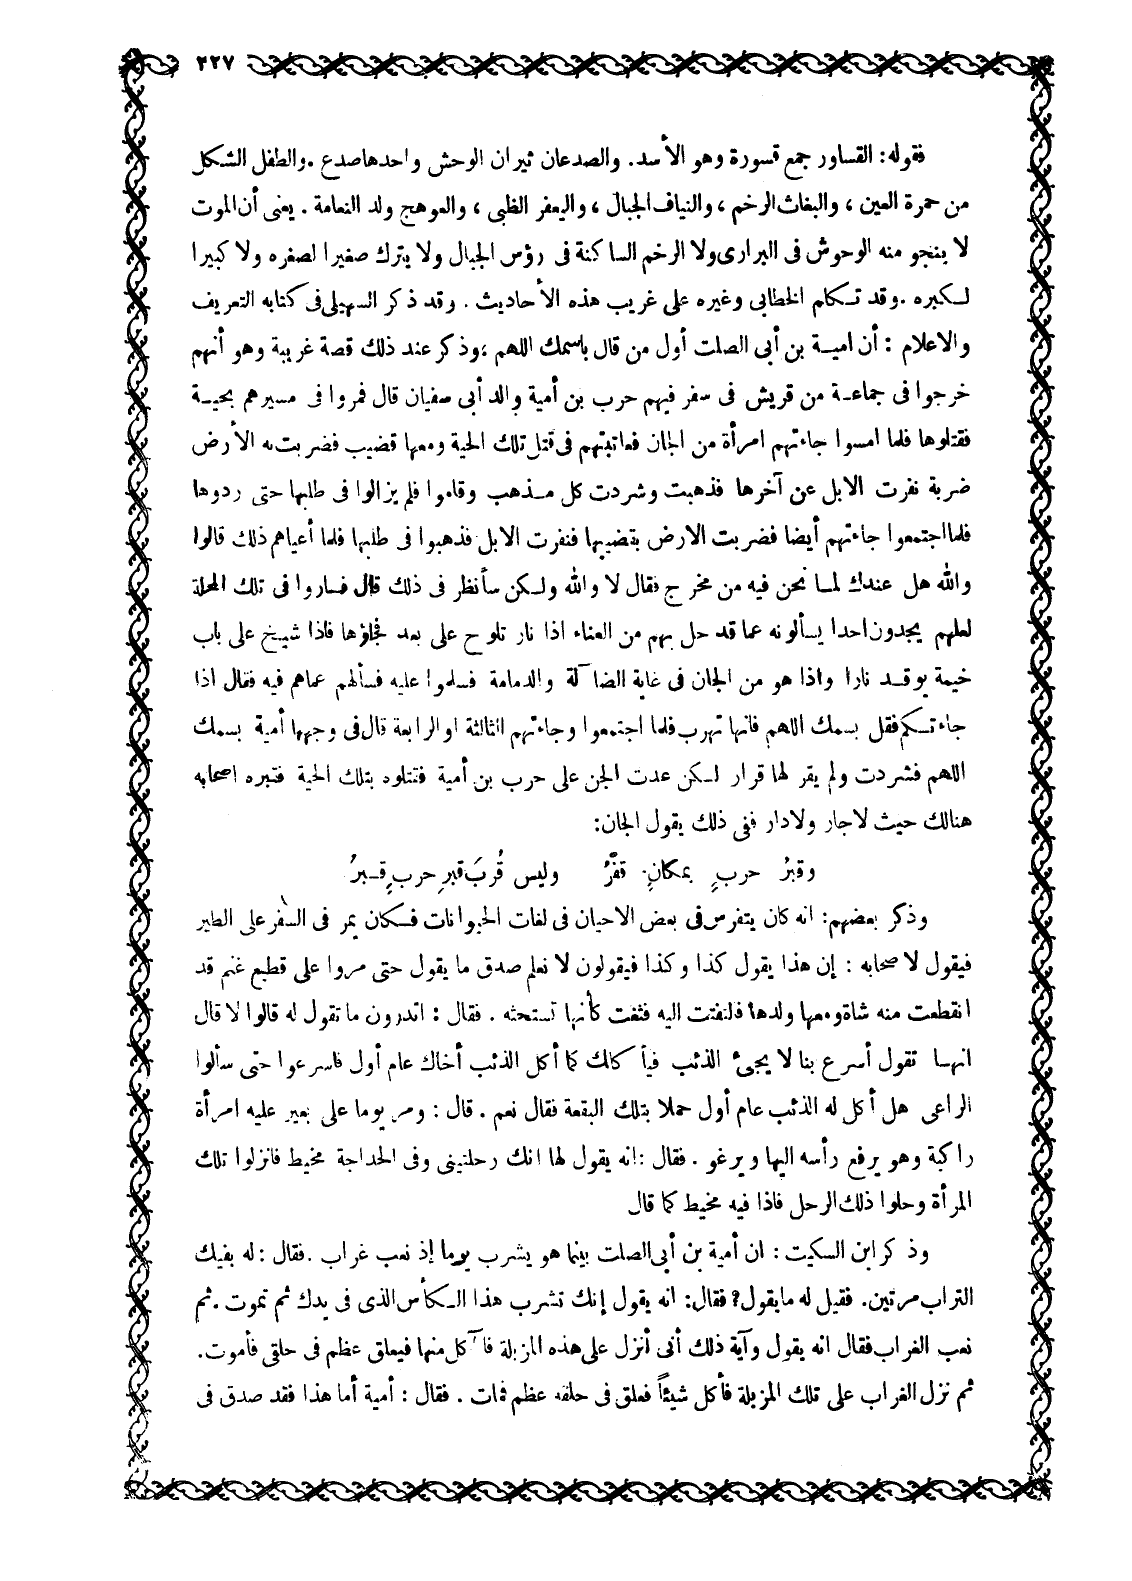 ٢٢٧
فقوله: القساور جمع قسورة وهو الأسد. والصدعان ثيران الوحش واحدها صدع .والطفل الشكل
من حمرة العين ، والبغاث الرخم ، والنياف الجبال ، واليعفر الظبي ، والعوهج ولد النعامة . يعنى أن الموت
لا ينجو منه الوحوش فى البرارى ولا الرخم الساكنة فى رؤس الجبال ولا يترك صغيرا لصغره ولا كبيرا
لكبره .وقد تكلم الخطابى وغيره على غريب هذه الأحاديث . وقد ذكر السهيلى فى كتابه التعريف
والاعلام : أن امية بن أبى الصلت أول من قال باسمك اللهم ،وذكر عند ذلك قصة غريبة وهو أنهم
خرجوا فى جماعة من قريش فى سفر فيهم حرب بن أمية والد أبى سفيان قال فمروا فى مسيرهم بحية
فقتلوها فلما امسوا جاءتهم امرأة من الجان فعاتبتهم فى قتل تلك الحية ومعها قضيب فضربت به الأرض
ضربة نفرت الابل عن آخرها فذهبت وشردت كل مذهب وقاموا فلم يزالوا فى طلبها حتى ردوها
فلما اجتمعوا جاءتهم أيضا فضربت الارض بقضيبها فنفرت الابل فذهبوا فى طلبها فلما أعياهم ذلك قالوا
والله هل عندك لما نحن فيه من مخرج فقال لا والله ولكن سأنظر فى ذلك قال فساروا فى تلك المحلة
لعلهم يجدون احدا يسألونه عما قد حل بهم من العناء اذا نار تلوح على بعد فجاؤها فاذا شيخ على باب
خيمة يوقد نارا واذا هو من الجان فى غاية الضآلة والدمامة فسلموا عليه فسألهم عما هم فيه فقال اذا
جاءتكم فقل بسمك اللهم فانها تهرب فلما اجتمعوا وجاءتهم الثالثة او الرابعة قال فى وجهها أمية بسمك
اللهم فشردت ولم يقر لها قرار لكن عدت الجن على حرب بن أمية فقتلوه بتلك الحية فقبره اصحابه
هنالك حيث لا جار ولا دار ففى ذلك يقول الجان:
وقبرُ حربٍ بمكانٍ قفرُ وليس قُربَ قبرِ حربٍ قبرُ
وذكر بعضهم: انه كان يتفرس فى بعض الاحيان فى لغات الحيوانات فكان يمر فى السفر على الطير
فيقول لاصحابه : إن هذا يقول كذا وكذا فيقولون لا نعلم صدق ما يقول حتى مروا على قطيع غنم قد
انقطعت منه شاة ومعها ولدها فالتفتت اليه فثغت كأنها تستحثه . فقال : اتدرون ما تقول له قالوا لا قال
انها تقول أسرع بنا لا يجىء الذئب فيأكلك كما أكل الذئب أخاك عام أول فاسرعوا حتى سألوا
الراعى هل أكل له الذئب عام أول حملا بتلك البقعة فقال نعم . قال : ومر يوما على بعير عليه امرأة
راكبة وهو يرفع رأسه اليها ويرغو . فقال :انه يقول لها انك رحلتينى وفى الحداجة مخيط فانزلوا تلك
المرأة وحلوا ذلك الرحل فاذا فيه مخيط كما قال
وذكر ابن السكيت : ان أمية بن أبى الصلت بينما هو يشرب يوما إذ نعب غراب .فقال :له بفيك
التراب مرتين. فقيل له ما يقول؟ فقال: انه يقول إنك تشرب هذا الكأس الذى فى يدك ثم تموت .ثم
نعب الغراب فقال انه يقول وآية ذلك أنى أنزل على هذه المزبلة فآكل منها فيعلق عظم فى حلقى فأموت.
ثم نزل الغراب على تلك المزبلة فأكل شيئاً فعلق فى حلقه عظم فمات . فقال : أمية أما هذا فقد صدق فى